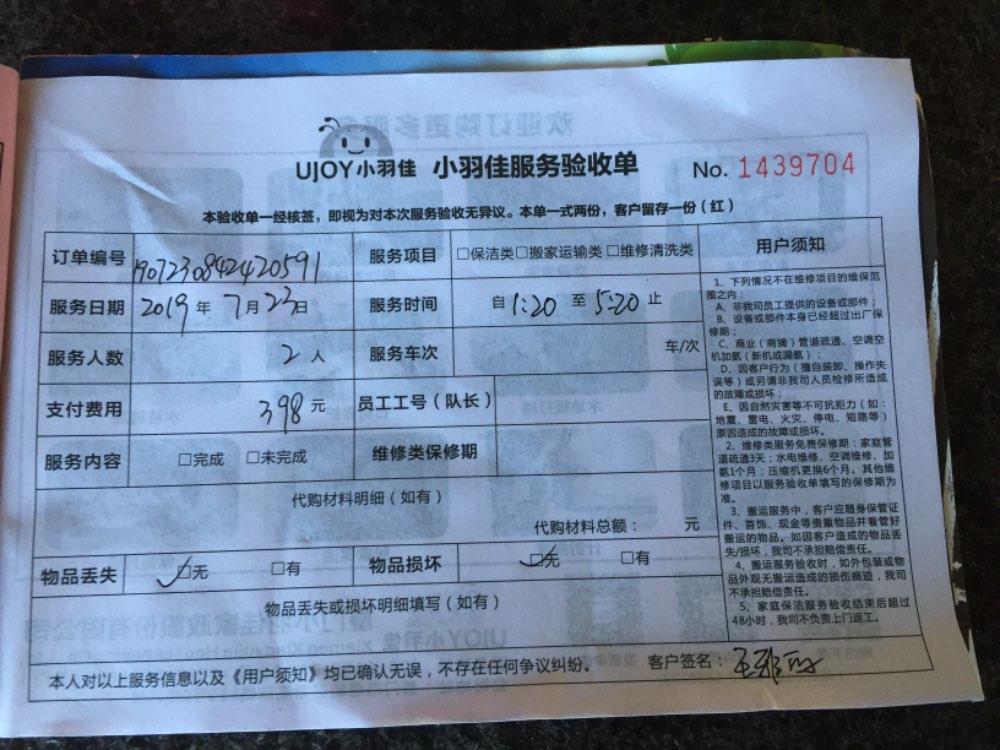 UJOY小羽佳 小羽佳服务验收单 No. 1439704
本验收单一经核签，即视为对本次服务验收无异议。本单一式两份，客户留存一份（红）
订单编号 1907230842420591 服务项目 □保洁类□搬家运输类□维修清洗类
服务日期 2019年7月23日 服务时间 自1:20至5:20止
服务人数 2人 服务车次 车/次
支付费用 398元 员工工号（队长）
服务内容 □完成 □未完成 维修类保修期
代购材料明细（如有）
代购材料总额： 元
物品丢失 ✓□无 □有 物品损坏 ✓□无 □有
物品丢失或损坏明细填写（如有）
本人对以上服务信息以及《用户须知》均已确认无误，不存在任何争议纠纷。 客户签名：
用户须知
1、下列情况不在维修项目的维保范
围之内：
A、非我司员工提供的设备或部件；
B、设备或部件本身已经超过出厂保
修期；
C、商业（商铺）管道疏通、空调空
机加氨（新机或漏氨）；
D、因客户行为（擅自装卸、操作失
误等）或另请非我司人员检修所造成
的故障或损坏；
E、因自然灾害等不可抗拒力（如：
地震、雷电、火灾、停电、短路等）
原因造成的故障或损坏。
2、维修类服务免费保修期：家庭管
道疏通3天；水电维修、空调维修、加
氨1个月；压缩机更换6个月。其他维
修项目以服务验收单填写的保修期为
准。
3、搬运服务中，客户应随身保管证
件、首饰、现金等贵重物品并看管好
搬运的物品。如因客户造成的物品丢
失/损坏，我司不承担赔偿责任。
4、搬运服务验收时，如外包装或物
品外观无搬运造成的损伤痕迹，我司
不承担赔偿责任。
5、家庭保洁服务验收结束后超过
48小时，我司不负责上门返工。